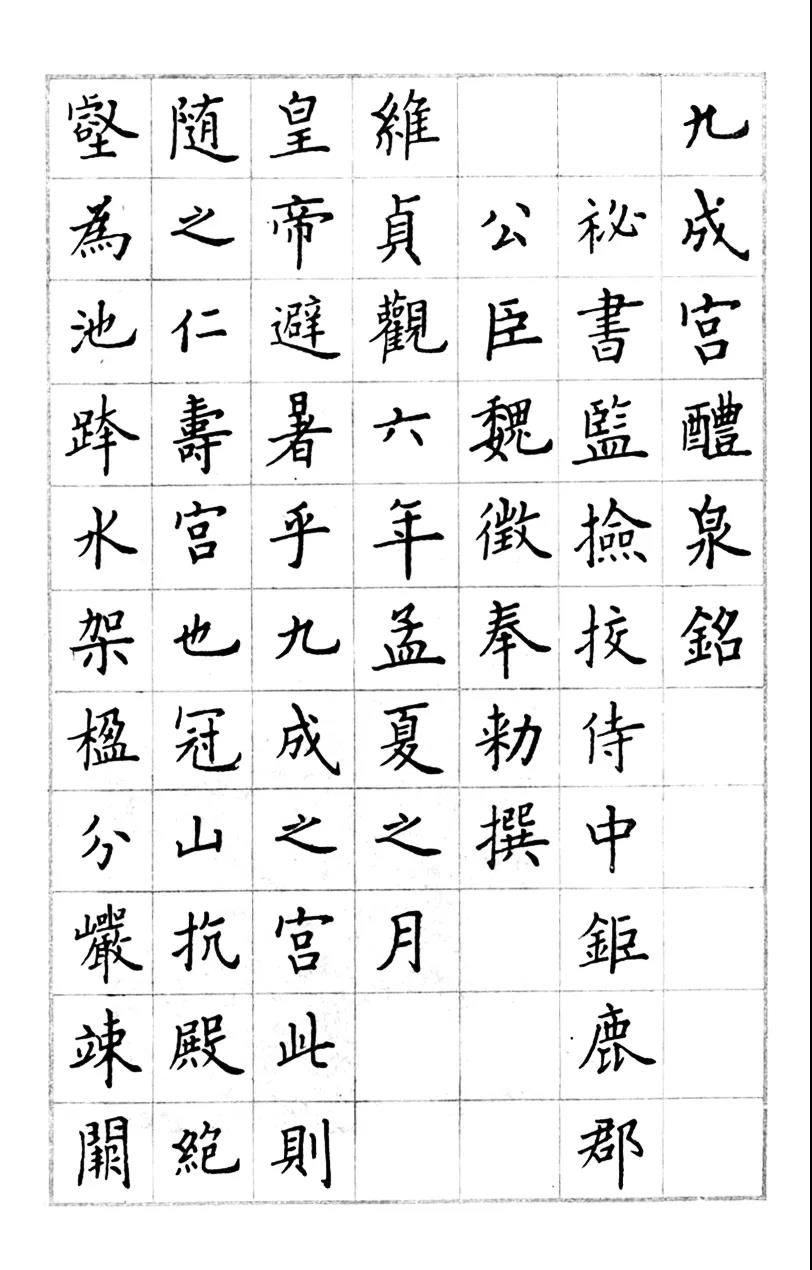 九成宫醴泉銘
祕書監撿挍侍中鉅鹿郡
公臣魏徵奉勑撰
維貞觀六年孟夏之月
皇帝避暑乎九成之宫此則
随之仁壽宫也冠山抗殿絶
壑為池跨水架楹分巖竦闕